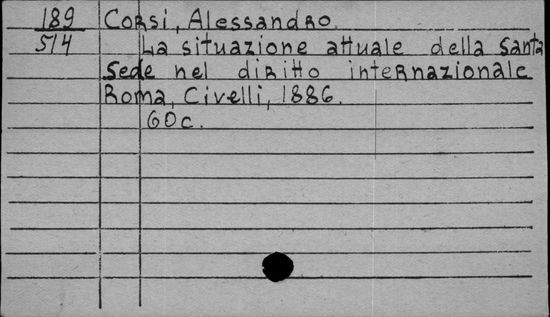 189 Corsi, Alessandro.
514 La situazione attuale della Santa
Sede nel diritto internazionale
Roma, Civelli, 1886.
60c.